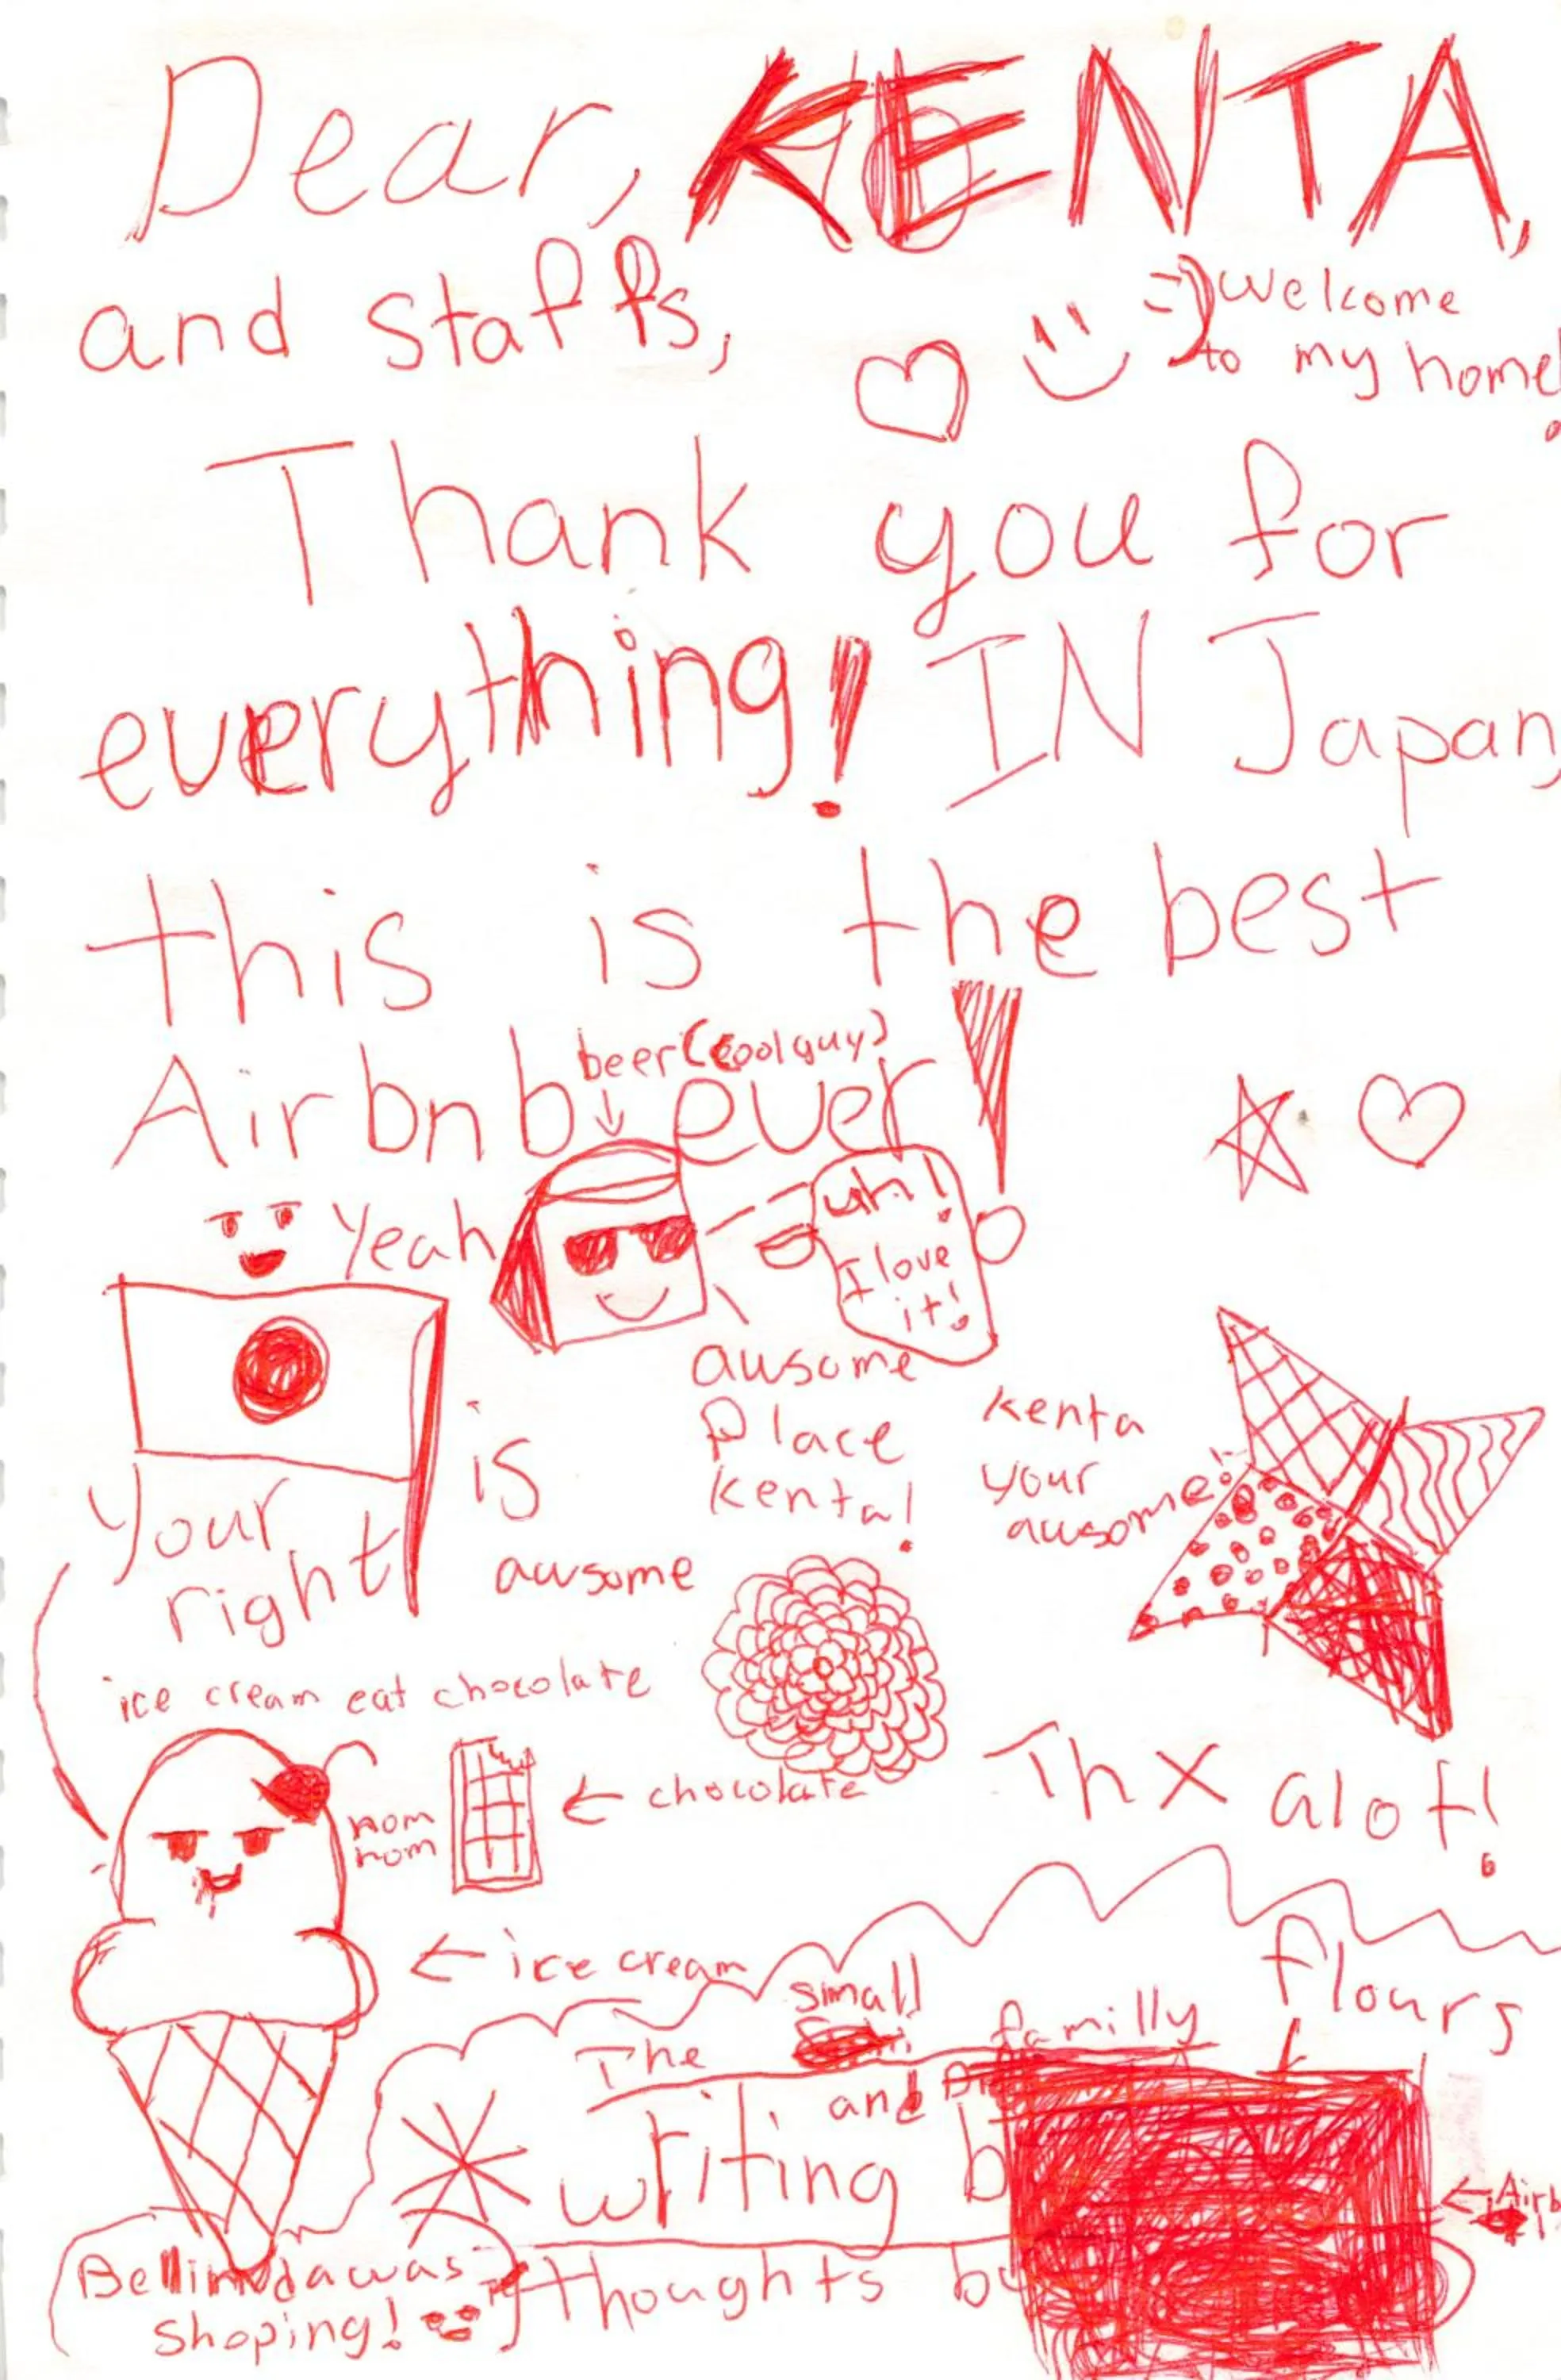 Dear, KENTA,
and staffs,
=) welcome
to my home!
Thank you for
everything! IN Japan,
this is the best
Airbnb ever!
beer (cool guy)
Yeah
uh!
I love
it!
is
awsome
your
right
awsome
Place
Kenta!
Kenta
your
awsome!
ice cream eat chocolate
nom
nom
← chocolate
Thx alot!
← ice cream
flours
The small familly
and
writing b
thoughts by
← Airb
Bellinda was
shoping!